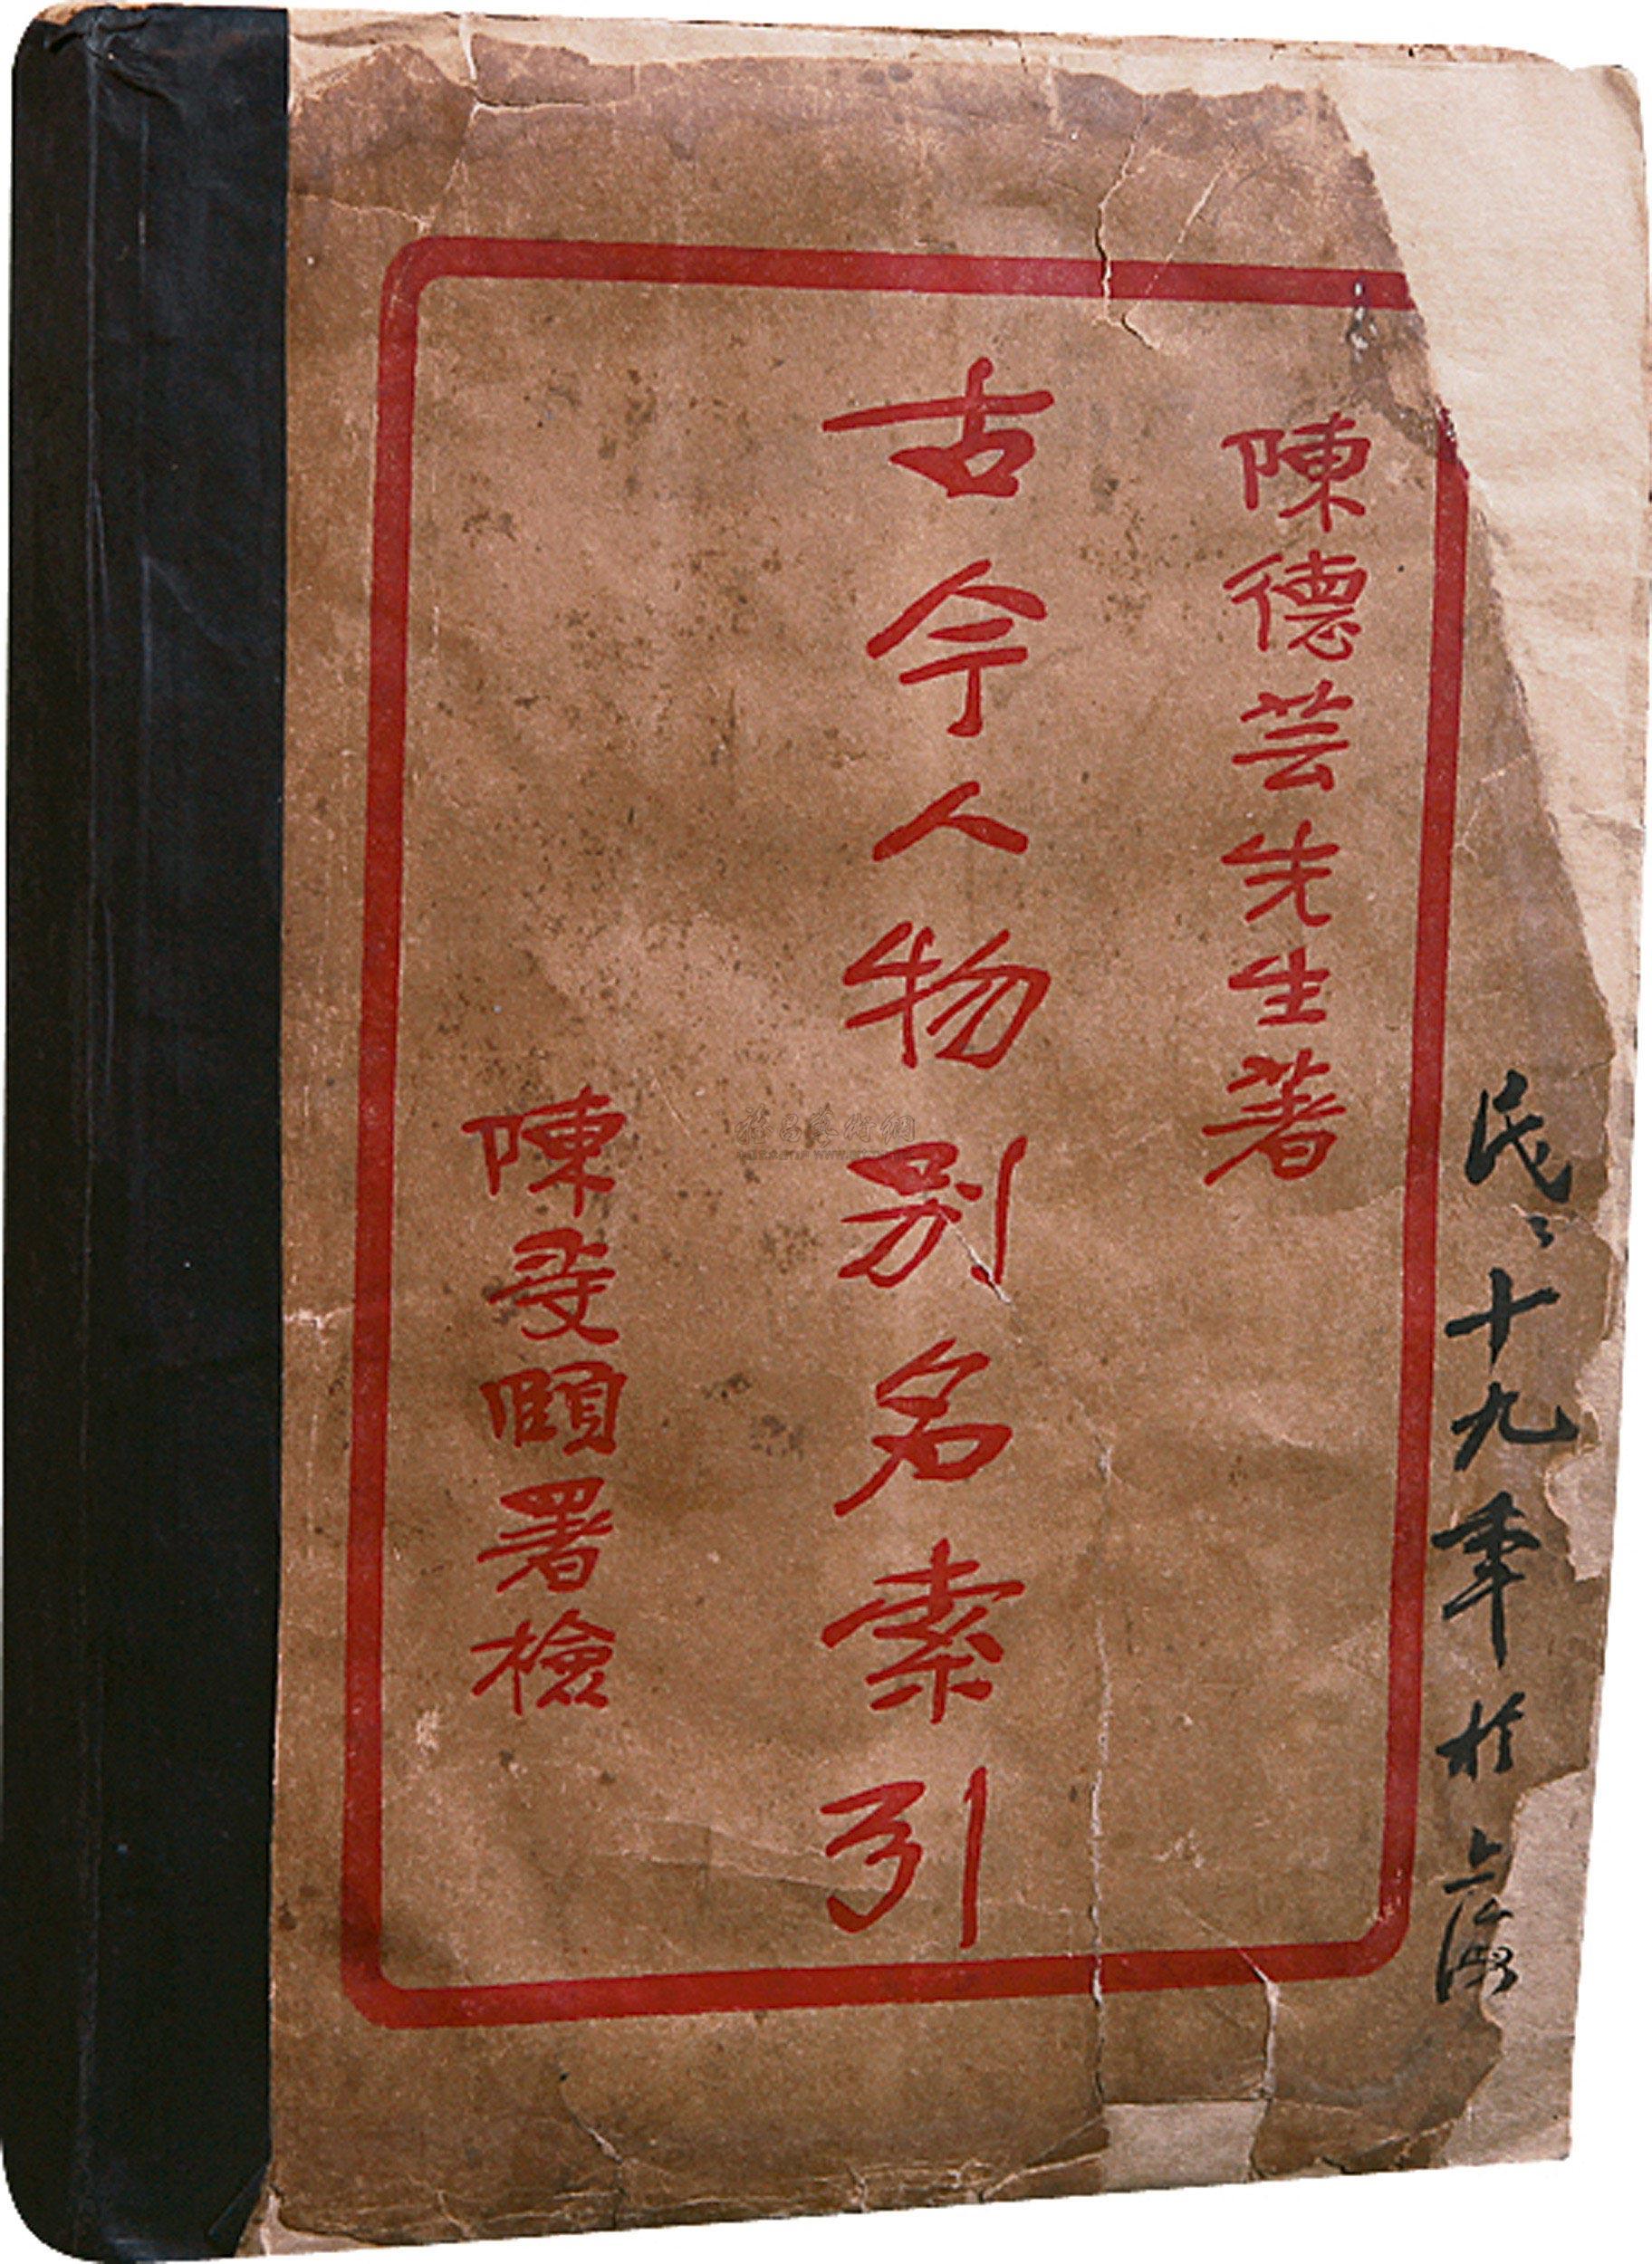 陳德芸先生著
古今人物別名索引
陳受頤署檢
民二十九年於上海
雅昌藝術網